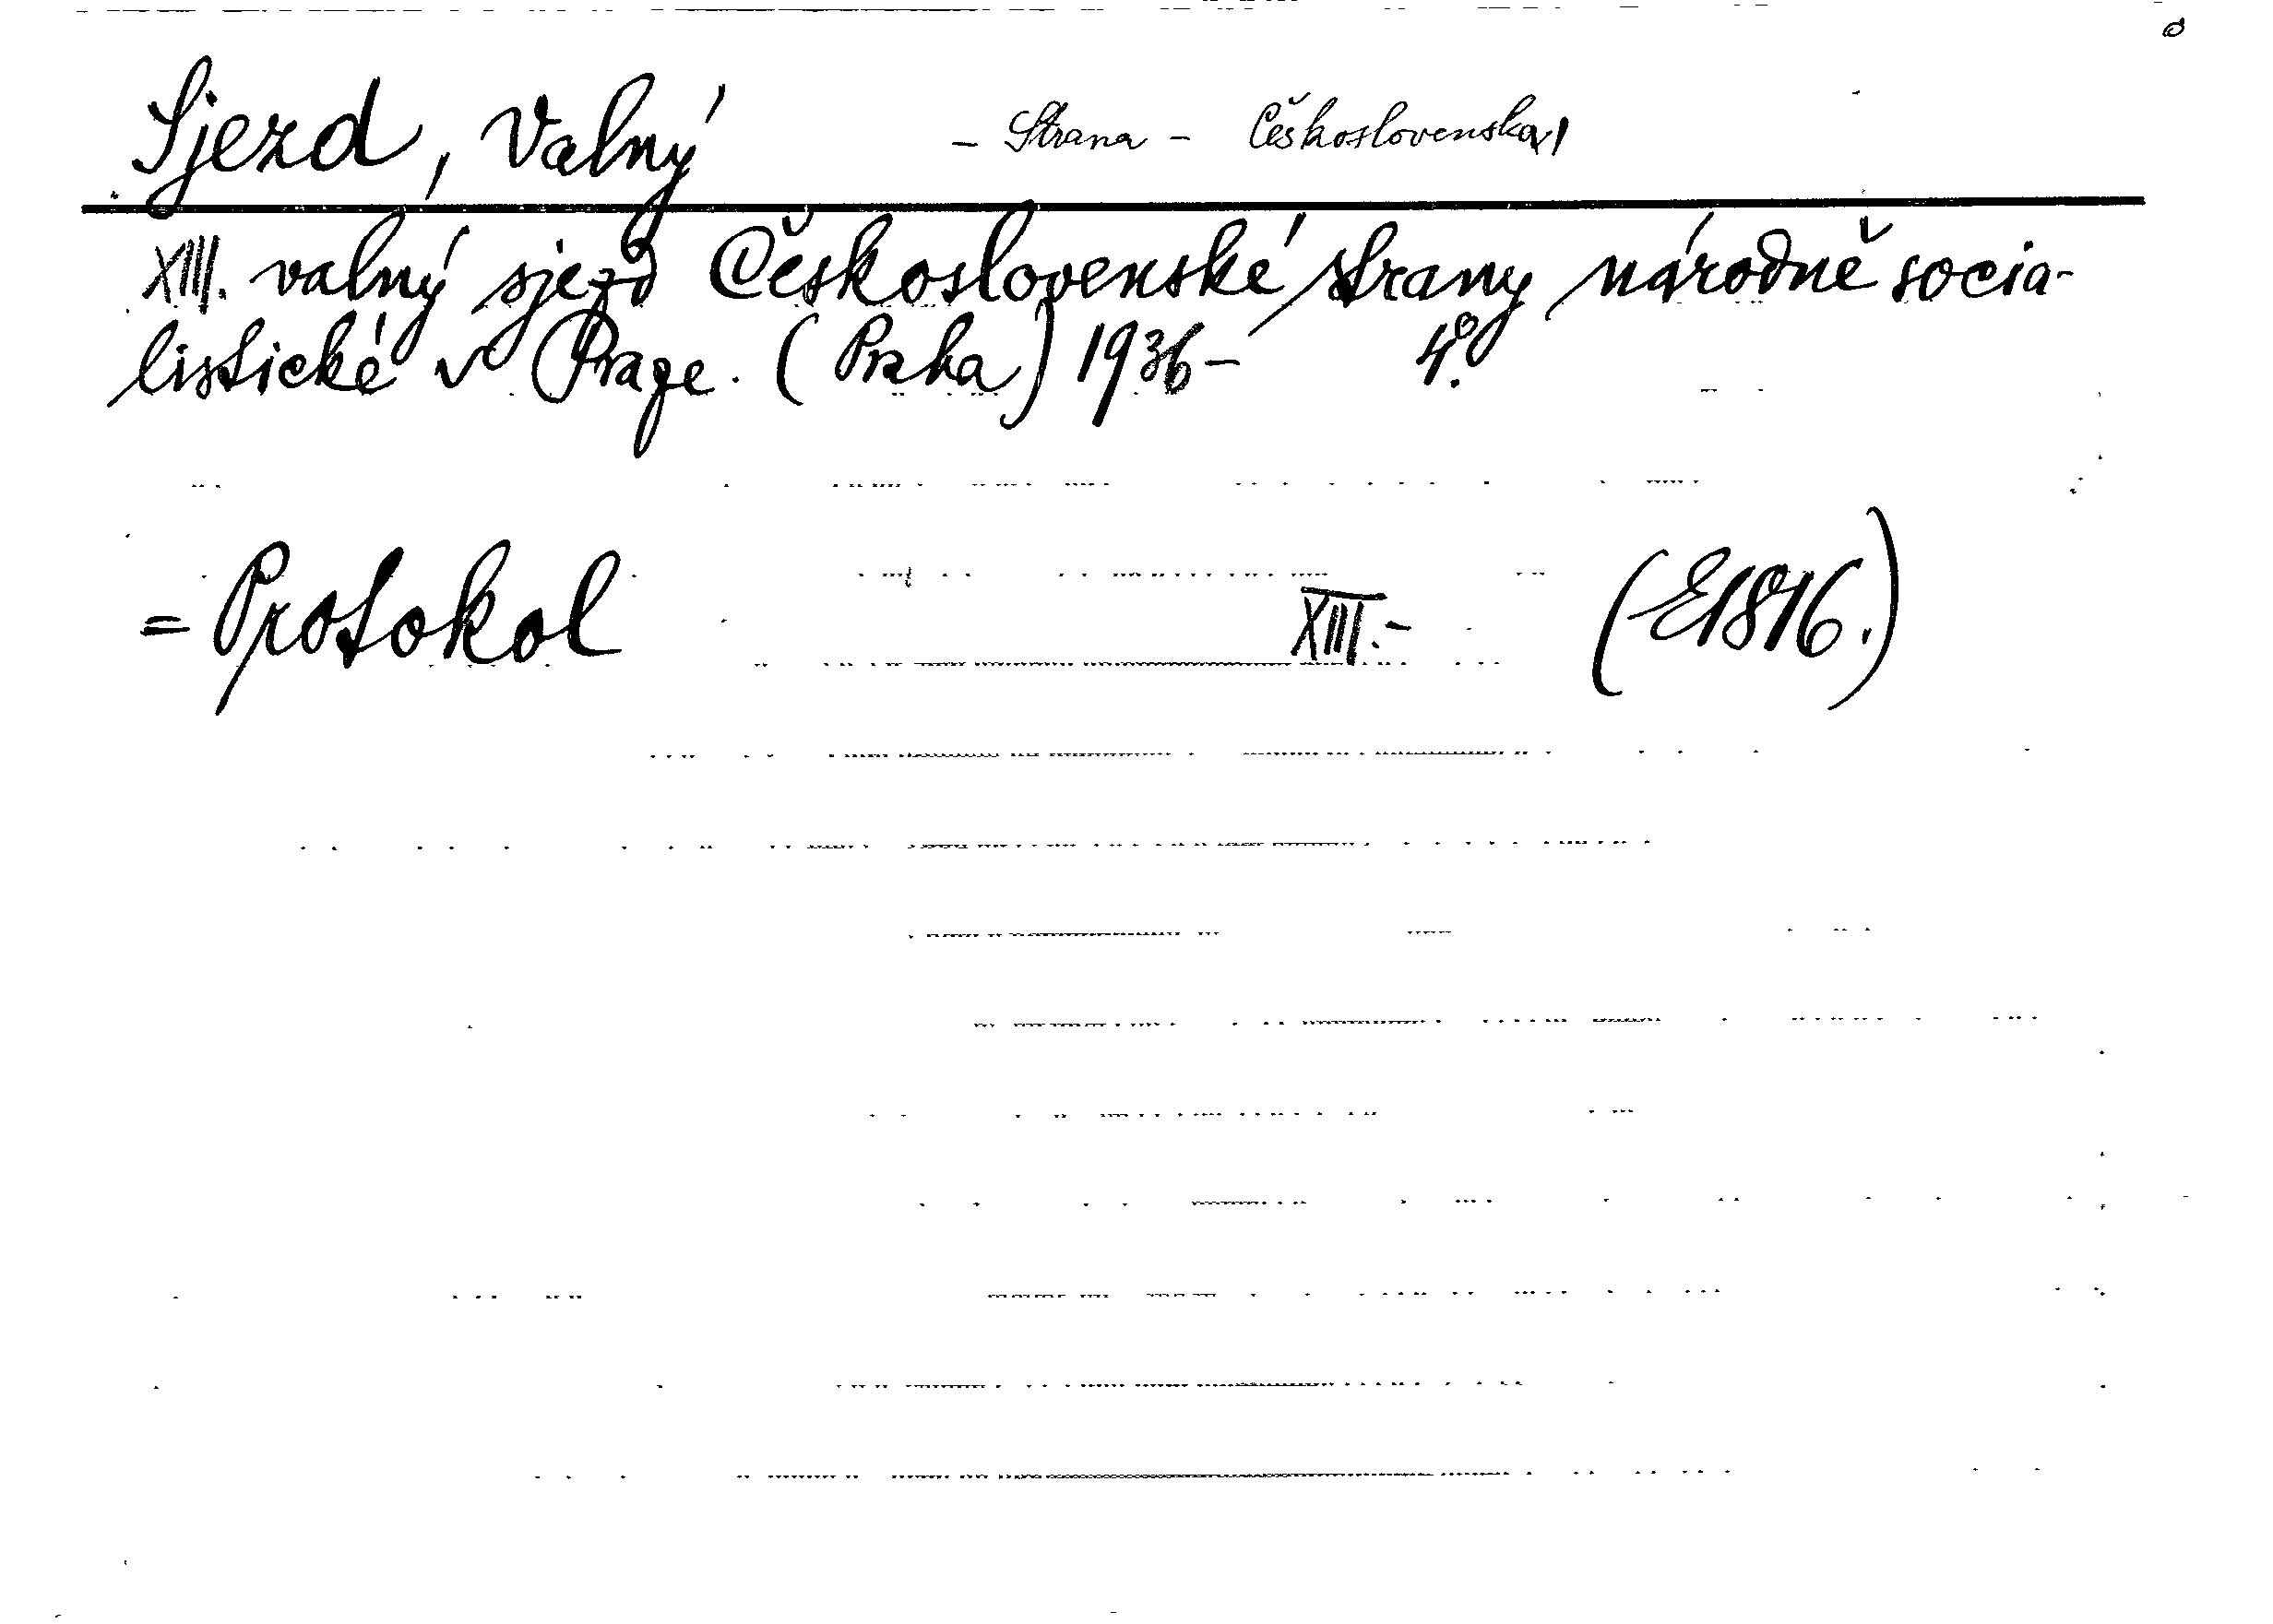 Sjezd, Valný - Strana - Československá
XIII. valný sjezd Československé strany národně socia-
listické v Praze. (Praha) 1936- 4°.
= Protokol XIII.- (E1816.)